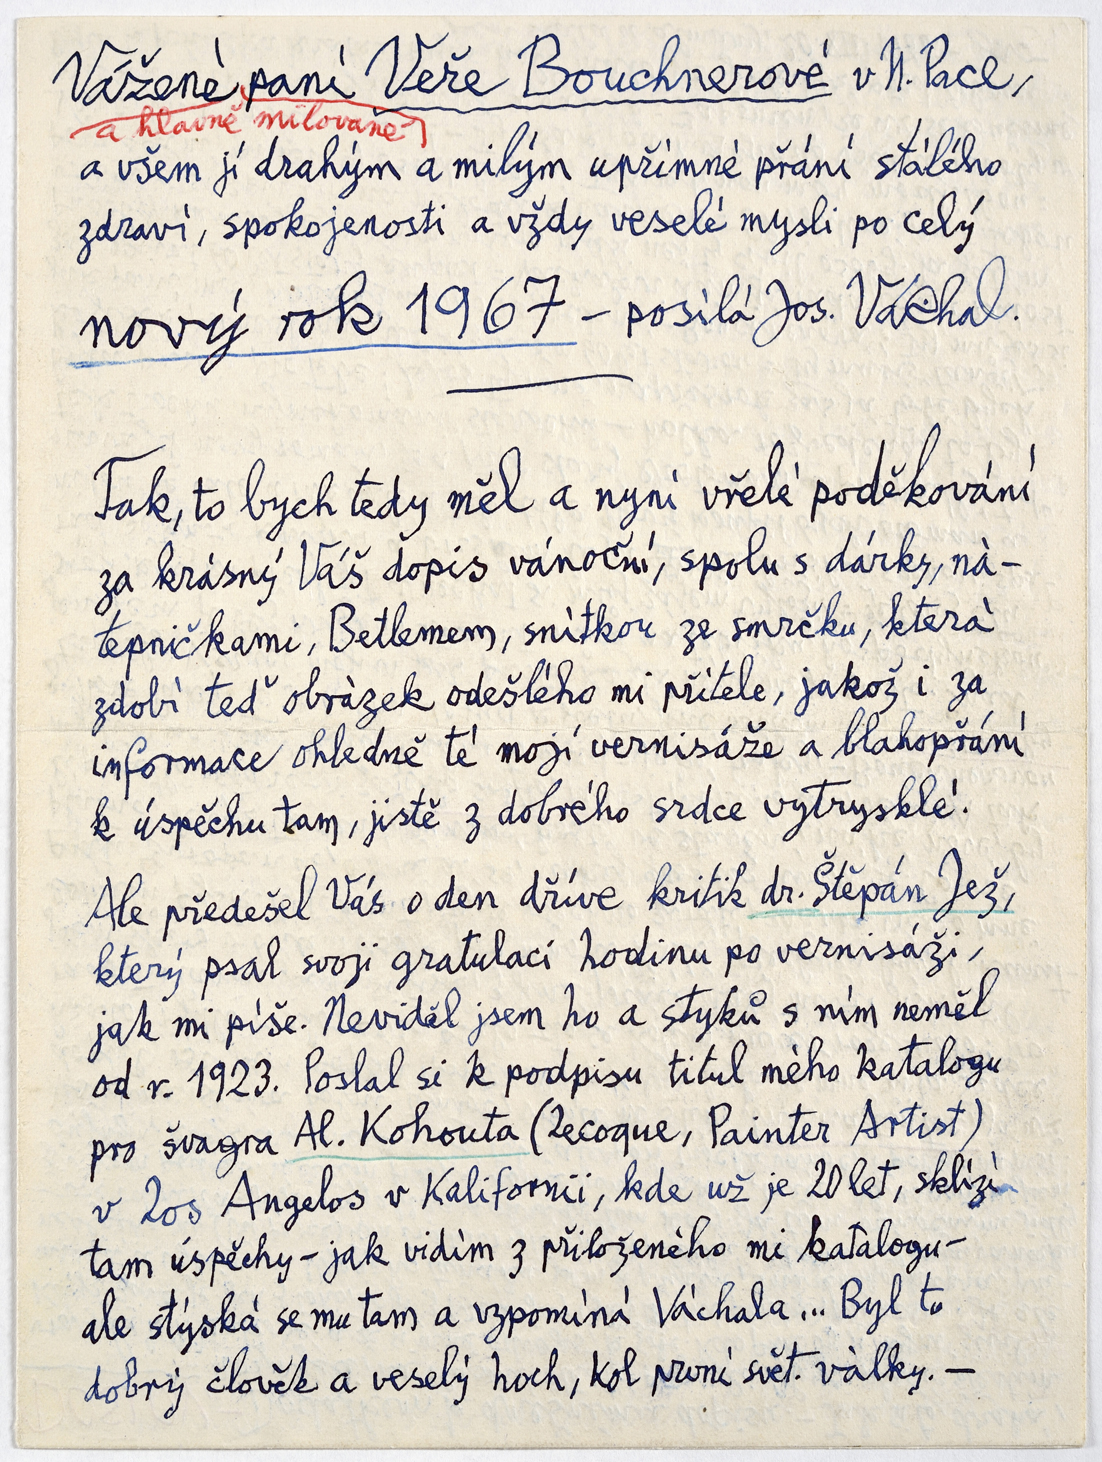 Vážené paní Veře Bouchnerové v N. Pace,
a hlavně milované
a všem jí drahým a milým upřímné přání stálého
zdraví, spokojenosti a vždy veselé mysli po celý
nový rok 1967 – posílá Jos. Váchal.
Tak, to bych tedy měl a nyní vřelé poděkování
za krásný Váš dopis vánoční, spolu s dárky, ná-
tepničkami, Betlemem, snítkou ze smrčku, která
zdobí teď obrázek odešlého mi přítele, jakož i za
informace ohledně té mojí vernisáže a blahopřání
k úspěchu tam, jistě z dobrého srdce vytrysklé.
Ale předešel Vás o den dříve kritik dr. Štěpán Jež,
který psal svoji gratulaci hodinu po vernisáži,
jak mi píše. Neviděl jsem ho a styků s ním neměl
od r. 1923. Poslal si k podpisu titul mého katalogu
pro švagra Al. Kohouta (Lecoque, Painter Artist)
v Los Angelos v Kalifornii, kde už je 20 let, sklízí
tam úspěchy – jak vidím z přiloženého mi katalogu –
ale stýská se mu tam a vzpomíná Váchala... Byl to
dobrý člověk a veselý hoch, kol první svět. války. –